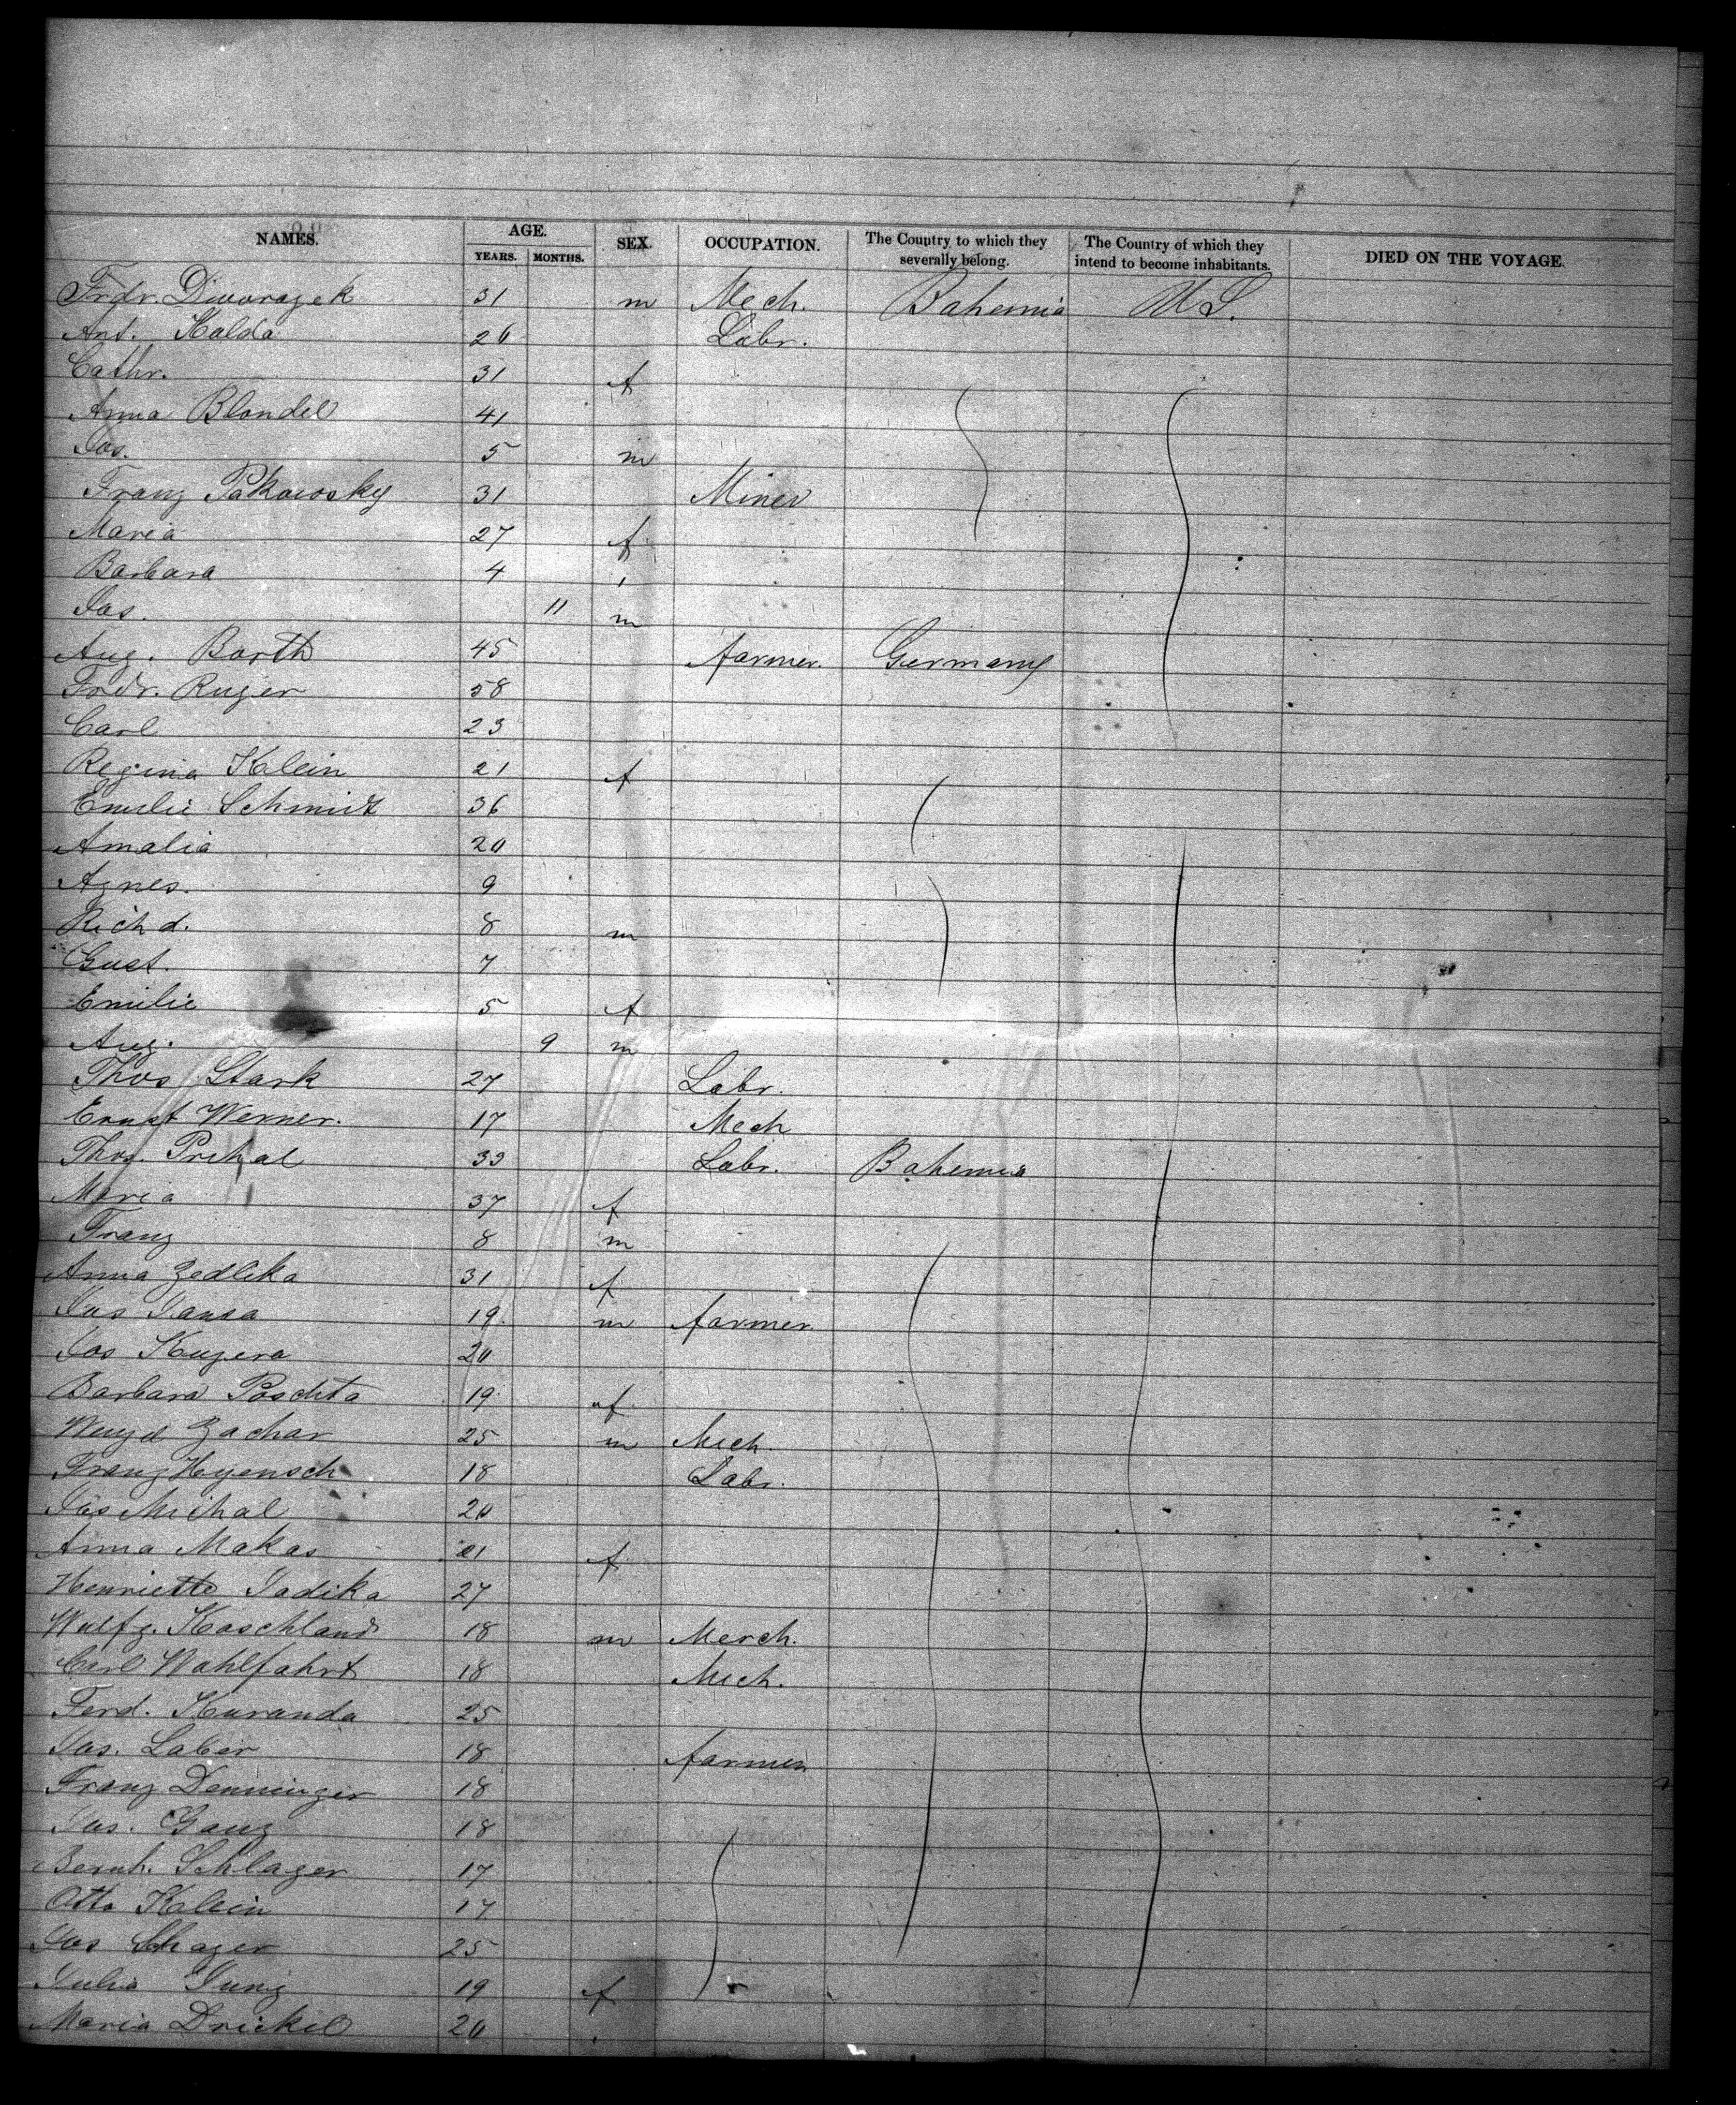 NAMES. AGE. SEX. OCCUPATION. The Country to which they severally belong. The Country of which they intend to become inhabitants. DIED ON THE VOYAGE
YEARS. MONTHS.
Frdr. Diworazek 31 m Mech. Bohemia U S.
Ant. Kalda 26 Labr.
Cathr. 31 f
Anna Blondel 41
Jos. 5 m
Franz Pakowsky 31 Miner
Maria 27 f
Barbara 4
Jos. 11 m
Aug. Barth 45 farmer. Germany
Frdr. Ruger 58
Carl 23
Regina Klein 21 f
Emilie Schmidt 36
Amalia 20
Agnes. 9
Richd. 8 m
Gust. 7
Emilie 5 f
Aug. 9 m
Thos Stark 27 Labr.
Ernst Werner. 17 Mech
Thos. Prihal 33 Labr. Bohemia
Maria 37 f
Franz 8 m
Anna Zedlika 31 f
Jos Jansa 19 m farmer
Jos Kuzera 20
Barbara Poschta 19 f
Wenzel Zachar 25 m Mech.
Franz Hyensch 18 Labr.
Jos Michal 20
Anna Makas 21 f
Henriette Jadika 27
Wolfg. Kaschland 18 m Merch.
Carl Wohlfahrt 18 Mech.
Ferd. Kuranda 25
Jos. Laber 18 farmer
Franz Denninger 18
Jos. Ganz 18
Bernh. Schlager 17
Otto Klein 17
Jos Schager 25
Julia Jung 19 f
Maria Drickel 20